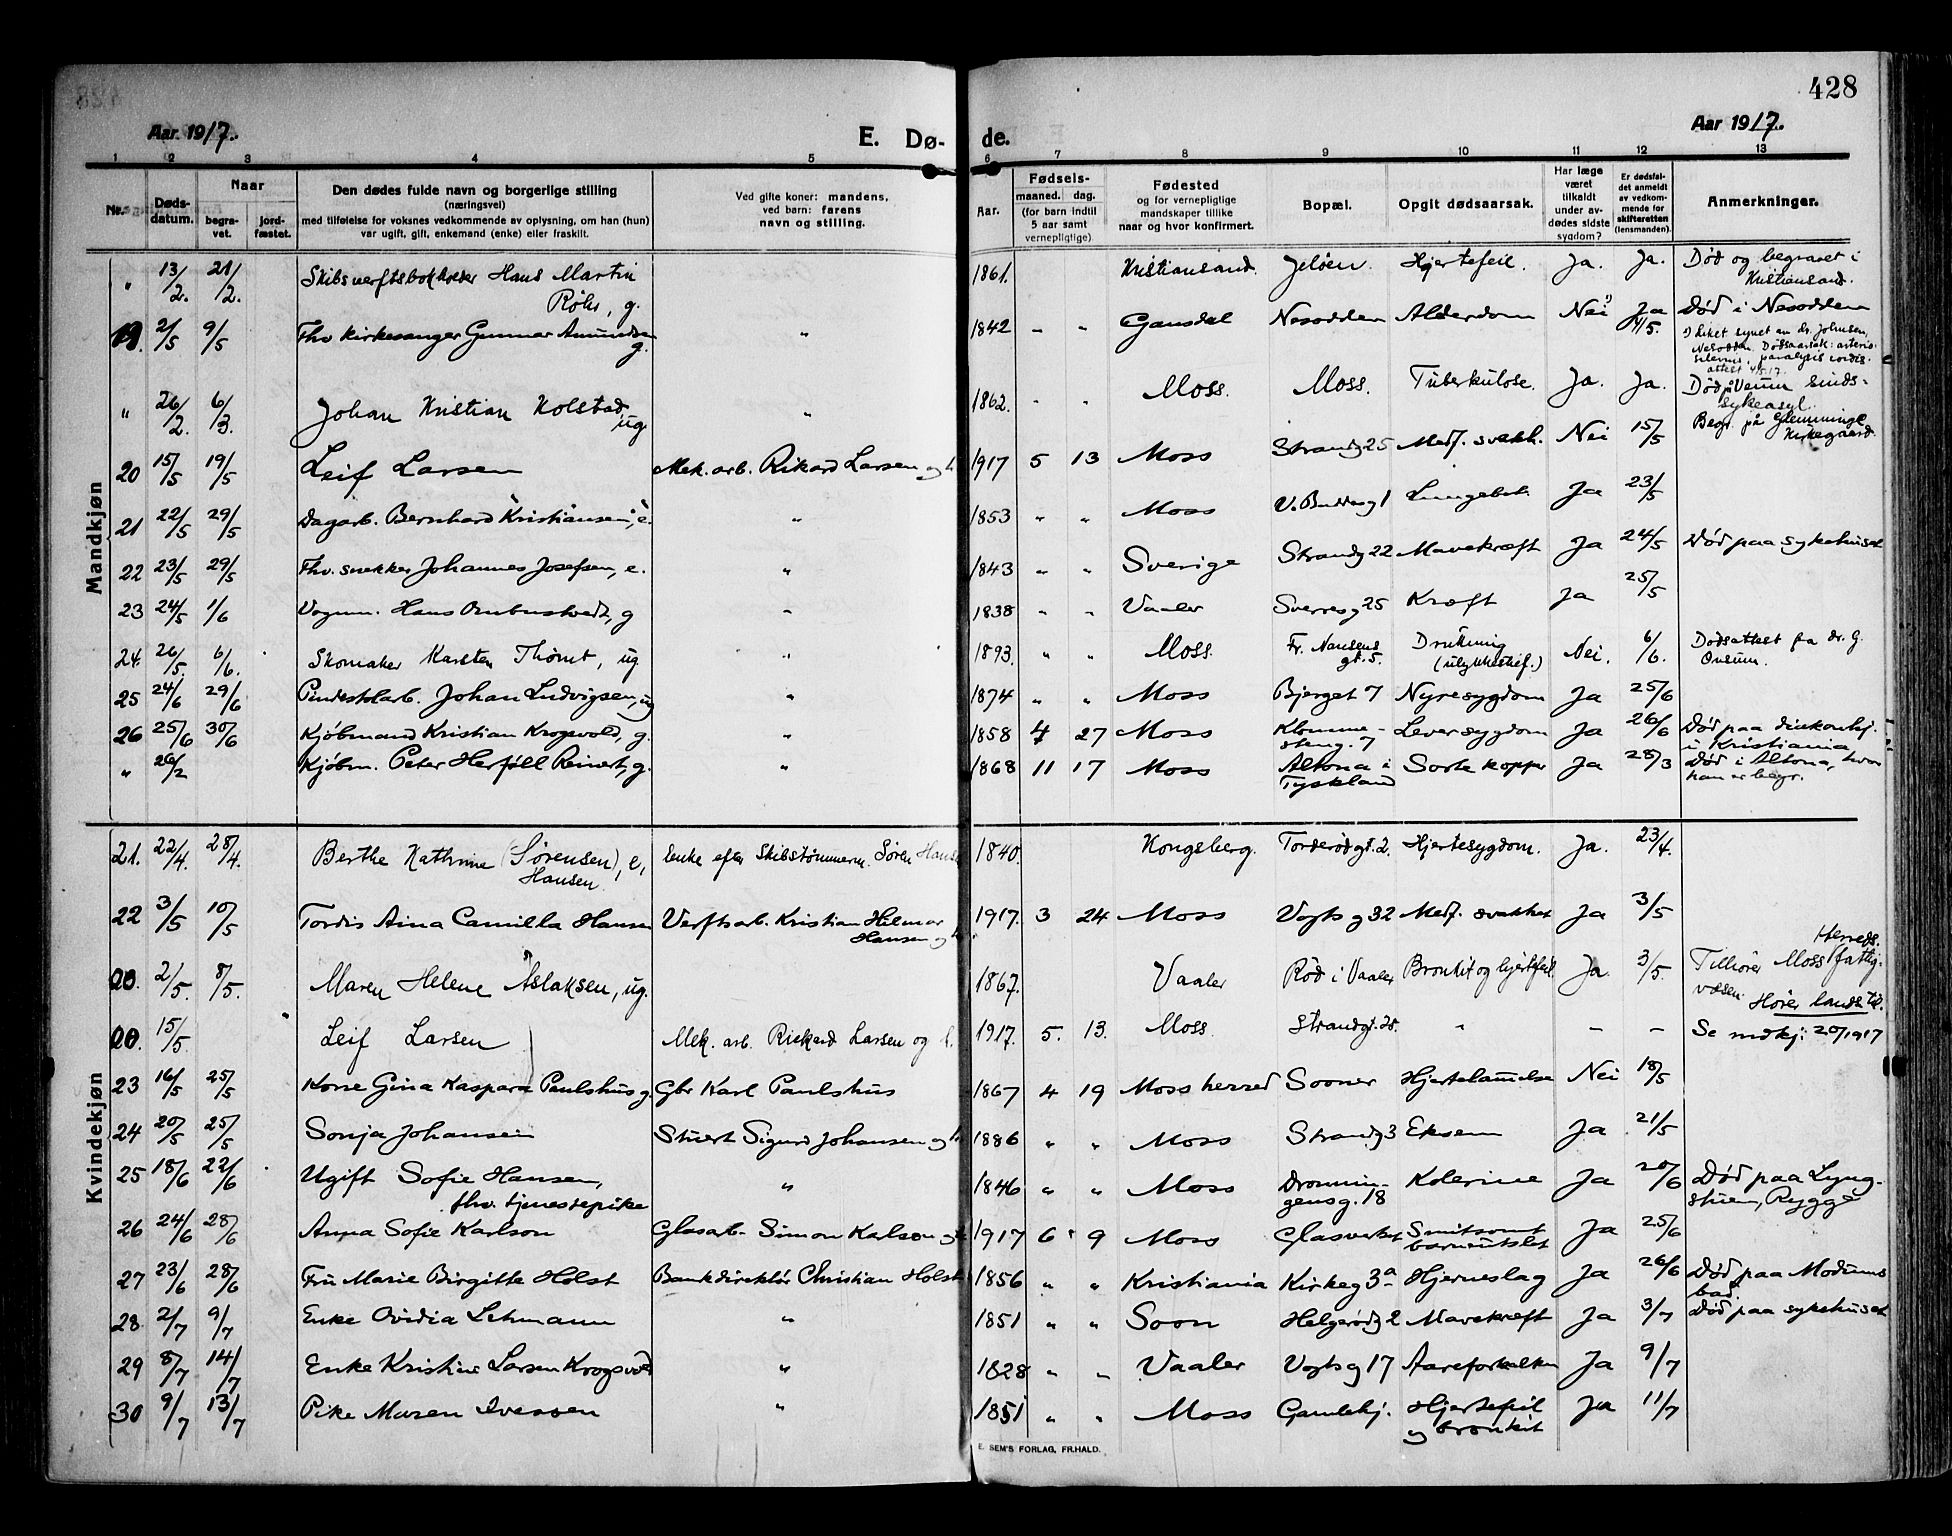 428
Aar. 1917.
E. Dø- de.
Aar 1917.
1 2 3 4 5 6 7 8 9 10 11 12 13
Nr. Døds-datum. Naar begra-vet. jord-fæstet. Den dødes fulde navn og borgerlige stilling (næringsvei) med tilføielse for voksnes vedkommende av oplysning, om han (hun) var ugift, gift, enkemand (enke) eller fraskilt. Ved gifte koner: mandens, ved barn: farens navn og stilling. Aar. Fødsels- maaned. dag. (for barn indtil 5 aar samt vernepligtige). Fødested og for vernepligtige mandskaper tillike naar og hvor konfirmert. Bopæl. Opgit dødsaarsak. Har læge været tilkaldt under av-dødes sidste sygdom? Er dødsfal-det anmeldt av vedkom-mende for skifteretten (lensmanden). Anmerkninger.
Mandkjøn
" 13/2. 21/2. Skibsverftsbokholder Hans Martin Røhr, g. 1861. Kristiansand. Jeløen. Hjertefeil. Ja. Ja. Død og begravet i Kristiansand.
19. 2/5 9/5 Fhv. kirkesanger Gunnar Amundsen g. " 1842 " " Gansdal Nesodden Alderdom Nei 1) Ja 4/5. Død i Nesodden 1) Liket synet av dr. Johnsen, Nesodden. Dødsaarsak: arterio-sclerosis, paralysis cordis. attest 4/5.17.
" 26/2. 6/3. Johan Kristian Kolstad, ug " 1862. " " Moss. Moss. Tuberkulose. Ja. Ja. Død på Veum sinds-sykeasyl. Begr. på Glemminge Kirkegaard.
20 15/5 19/5 Leif Larsen Mek. arb. Rikard Larsen og h. 1917 5 13 Moss Strandg 25 Medf. svakh. Nei 15/5
21 22/5 29/5 Dagarb. Bernhard Kristiansen, e. " 1853 " " Moss V. Buddesg 1 Lungebet. Ja 23/5
22 23/5 29/5 Fhv. snekker Johannes Josefsen, e. " 1843 " " Sverige Strandg 22 Mavekræft Ja 24/5 Død paa sykehuset
23 24/5 1/6 Vognm. Hans Ombustvedt, g " 1838 " " Vaaler Sverresg 25 Kræft Ja 25/5
24. 26/5. 6/6. Skomaker Karsten Thömt, ug " 1893. " " Moss. Fr. Nansens gt. 5. Drukning (ulykkestilf.) Nei. 6/6. Dødsattest fra dr. G. Onsum.
25 24/6 29/6 Pindestolarb. Johan Ludvigsen, ug " 1874 " " Moss Bjerget 7 Nyresygdom Ja 25/6
26 25/6 30/6 Kjøbmand Kristian Krogsvold, g. " 1858 4 27 Moss Klomme-steng. 7 Leversygdom Ja 26/6 Død paa diakonhj. i Kristiania
" 26/2 Kjøbm. Peter Herföll Reinert, g. " 1868 11 17 Moss Altona i Tyskland Sorte kopper Ja 28/3 Død i Altona, hvor han er begr.
Kvindekjøn
21. 22/4. 28/4. Berthe Kathrine (Sørensen), e, Hansen. Enke efter Skibstømmerm. Søren Hansen 1840. Kongsberg. Torderødgt. 2. Hjertesygdom. Ja. 23/4.
22 3/5 10/5 Tordis Aina Camilla Hansen Verftsarb. Kristian Hilmar Hansen og h. 1917. 3 24 Moss Vogts g 32 Medf. svakhet Ja 3/5
20. 2/5. 8/5. Maren Helene Aslaksen, ug. 1867. Vaaler Rød i Vaaler Bronkit og hjertefeil Ja. 3/5. Tilhører Moss Herreds. fattig-væsen. Hører lands til.
20. 15/5. Leif Larsen Mek. arb. Rickard Larsen og h. 1917. 5. 13. Moss. Strandgt. 25. " – – Se mdkj: 20/1917
23 16/5 25/5 Kone Gina Kaspara Paulshus g. Gbr Karl Paulshus 1867 4 19 Moss herred Sooner Hjertelammelse Nei 18/5
24 20/5 25/5 Sonja Johansen Stuert Sigurd Johansen og h. 1886 " " Moss Strandg 3 Eksem Ja 21/5
25 18/6 22/6 Ugift Sofie Hansen, fhv. tjenestepike " 1846 " " Moss Dronnin-gensg. 18 Kolerine Ja 20/6 Død paa Lyng-stuen, Rygge
26 24/6 28/6 Anna Sofie Karlson Glasarb. Simon Karlson og h. 1917 6 9 Moss Glasverket Smitsomt barneutslet Ja 25/6
27 23/6 28/6 Fru Marie Birgitte Holst Bankdirektør Christian Holst 1856 " " Kristiania Kirkeg 3a Hjerneslag Ja 26/6 Død paa Modums bad
28 2/7 9/7 Enke Ovidia Lehmann " 1851 " " Soon Helgerødg 2 Mavekræft Ja 3/7 Død paa sykehuset
29 8/7 14/7 Enke Kristine Larsen Krogsvold " 1828 " " Vaaler Vogts g 17 Aareforkalken Ja 9/7
30 9/7 13/7 Pike Maren Iversen " 1851 " " Moss Gamlehj. Hjertefeil og bronkit Ja 11/7
E. SEM'S FORLAG, FR.HALD.